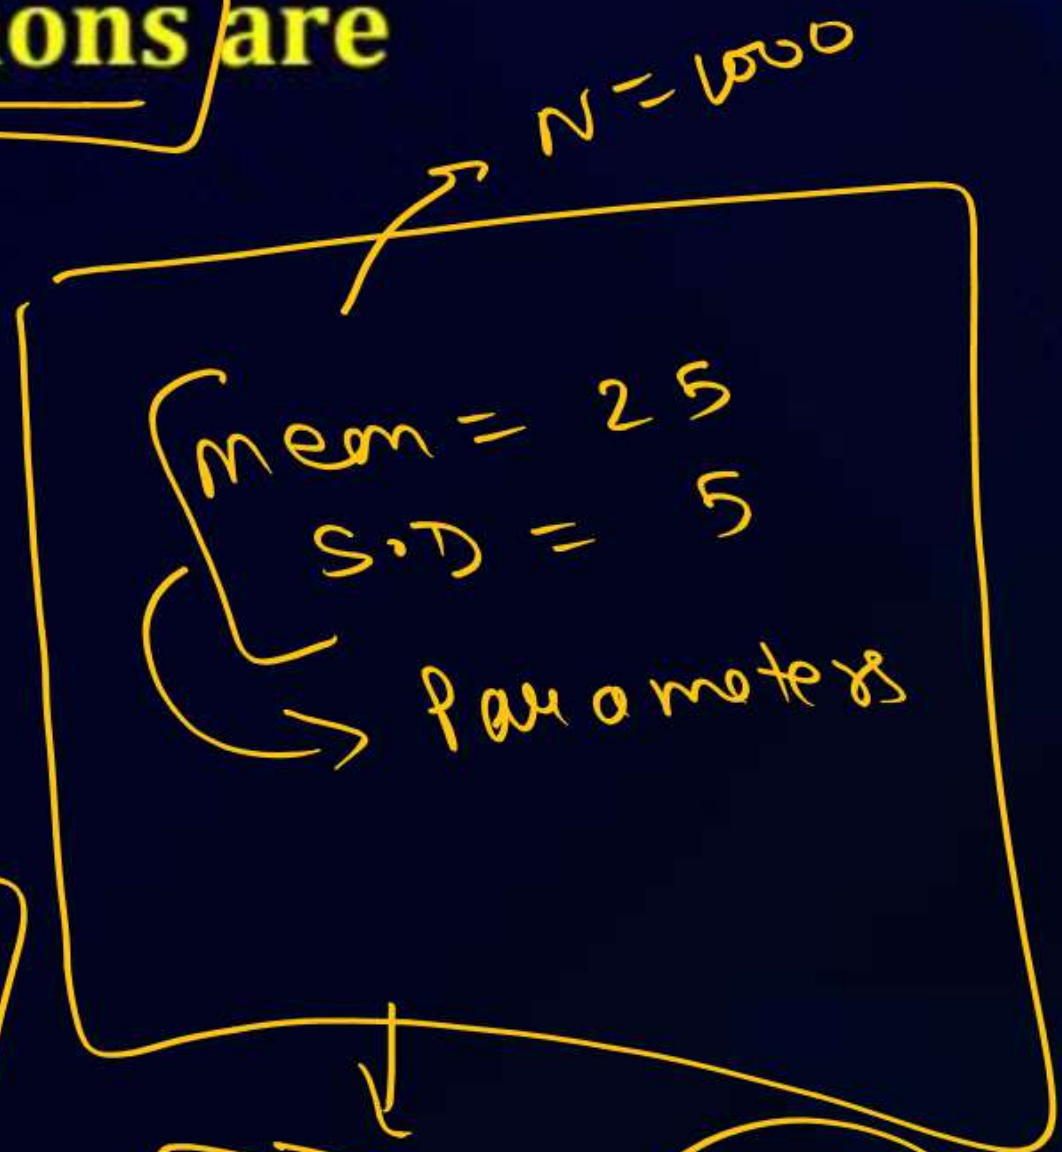 ons are
N = 1000
mean = 25
S.D = 5
Parameters